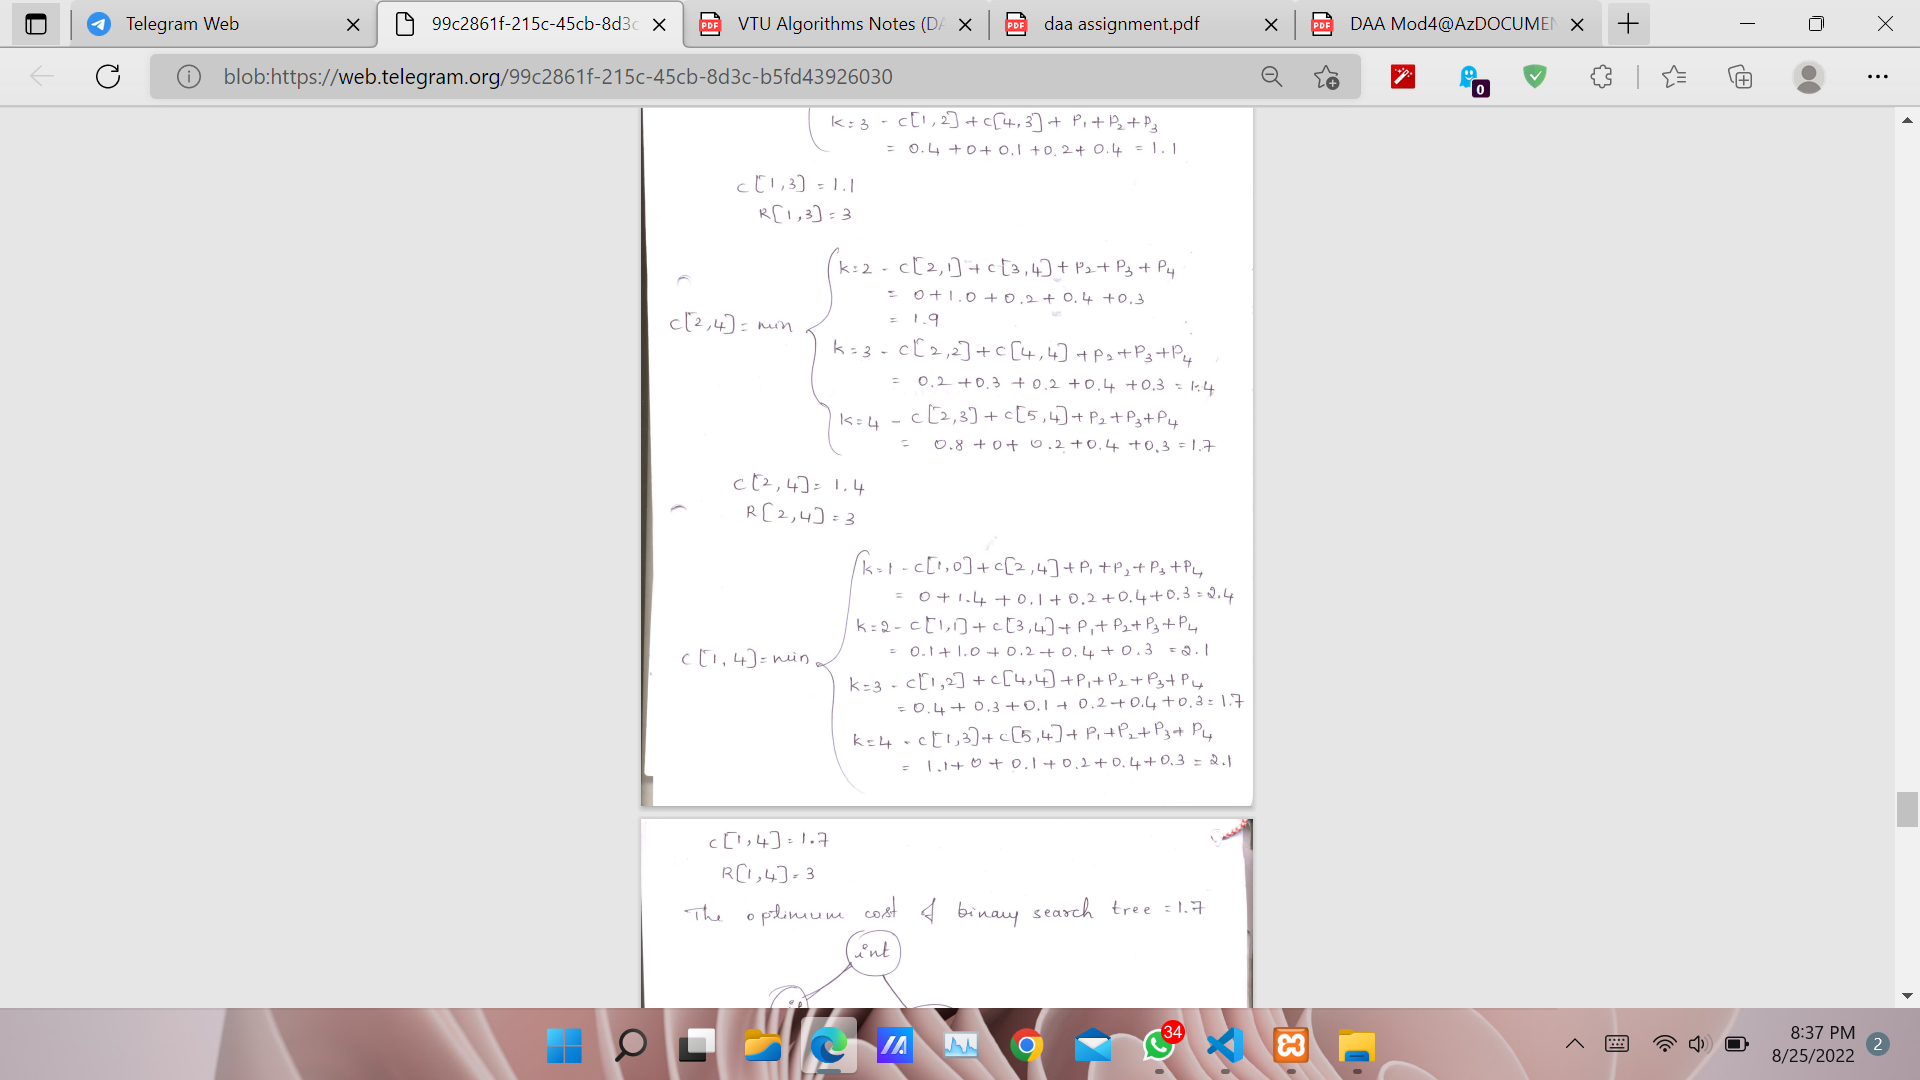 Telegram Web
99c2861f-215c-45cb-8d3c
VTU Algorithms Notes (DA
daa assignment.pdf
DAA Mod4@AzDOCUMEN
blob:https://web.telegram.org/99c2861f-215c-45cb-8d3c-b5fd43926030
0
k=3 - C[1,2] + C[4,3] + P1+P2+P3
= 0.4 +0+ 0.1 +0.2+ 0.4 = 1.1
C[1,3] = 1.1
R[1,3] = 3
k=2 - C[2,1] + C[3,4] + P2+ P3 + P4
= 0+1.0 +0.2+ 0.4 +0.3
= 1.9
C[2,4] = min
k=3 - C[2,2] + C[4,4] + P2+P3+P4
= 0.2 +0.3 + 0.2 +0.4 +0.3 = 1.4
k=4 - C[2,3] + C[5,4] + P2+P3+P4
= 0.8 +0+ 0.2 +0.4 +0.3 = 1.7
C[2,4] = 1.4
R[2,4] = 3
k=1 - C[1,0] + C[2,4] + P1+P2+P3+P4
= 0+1.4 +0.1+0.2+0.4+0.3 = 2.4
k=2 - C[1,1] + C[3,4] + P1+P2+P3+P4
= 0.1+1.0 +0.2+0.4+0.3 = 2.1
C[1,4] = min
k=3 - C[1,2] + C[4,4] + P1+P2+P3+P4
= 0.4+ 0.3+0.1+ 0.2+0.4+0.3 = 1.7
k=4 - C[1,3] + C[5,4] + P1+P2+P3+P4
= 1.1+0+0.1+0.2+0.4+0.3 = 2.1
C[1,4] = 1.7
R[1,4] = 3
The optimum cost of binary search tree = 1.7
int
if
34
8:37 PM
8/25/2022
2